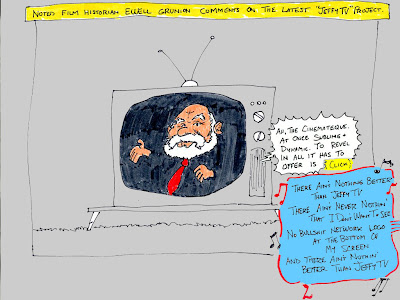 NOTED FILM HISTORIAN ELLELL GRUNION COMMENTS ON THE LATEST "JEFFY TV" PROJECT.
AH, THE CINEMATEQUE.
AT ONCE SUBLIME +
DYNAMIC. TO REVEL
IN ALL IT HAS TO
OFFER IS A CLICK
THERE AIN'T NOTHING BETTER
THAN JEFFY TV
THERE AIN'T NEVER NOTHIN'
THAT I DON'T WANT TO SEE
NO BULLSHIT NETWORK LOGO
AT THE BOTTOM OF
MY SCREEN
AND THERE AIN'T NOTHIN
BETTER THAN JEFFY TV